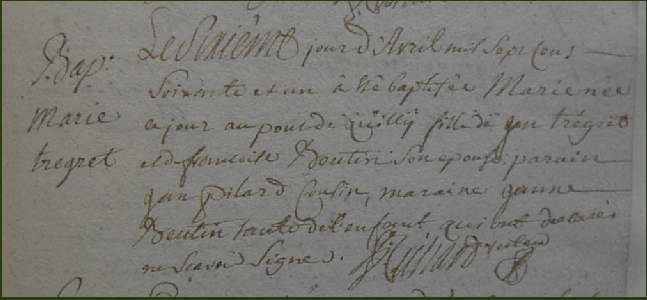 Bap:
Marie
tregret
Le Sixième jour d'Avril mil Sept Cens
Soixante et un à été baptisée Marie née
ce jour au pont de Quilly fille de jan trégret
et de francoise Boutin Son epouse parain
jan pilard Cousin, maraine janne
Boutin tante de l'enfant, qui ont declarés
ne Scavoir Signer.